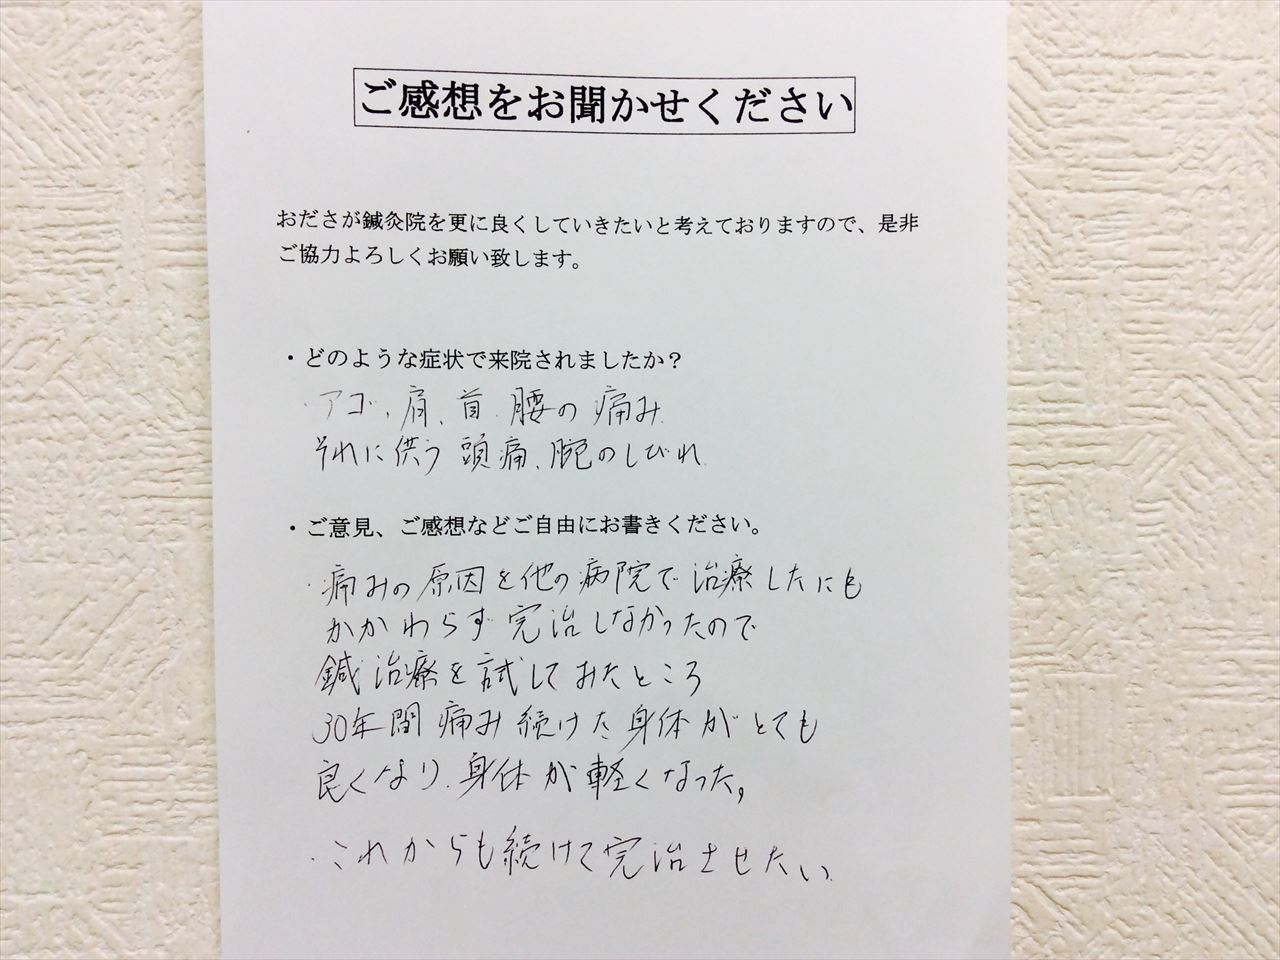 ご感想をお聞かせください
おださが鍼灸院を更に良くしていきたいと考えておりますので、是非
ご協力よろしくお願い致します。
・どのような症状で来院されましたか？
・アゴ、肩、首、腰の痛み
それに供う頭痛、腕のしびれ
・ご意見、ご感想などご自由にお書きください。
・痛みの原因を他の病院で治療したにも
かかわらず完治しなかったので
鍼治療を試してみたところ
30年間痛み続けた身体がとても
良くなり、身体が軽くなった。
・これからも続けて完治させたい